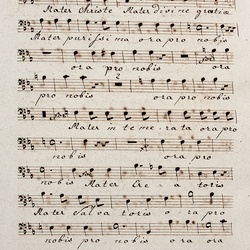 Mater Christe Mater divinæ gratiæ
Mater purissima ora pro nobis
ora pro nobis ora
pro nobis ora pro nobis
Mater intemerata ora pro
nobis ora pro
nobis Mater Creatoris
Mater Salvatoris ora pro
nobis pro nobis ora pro